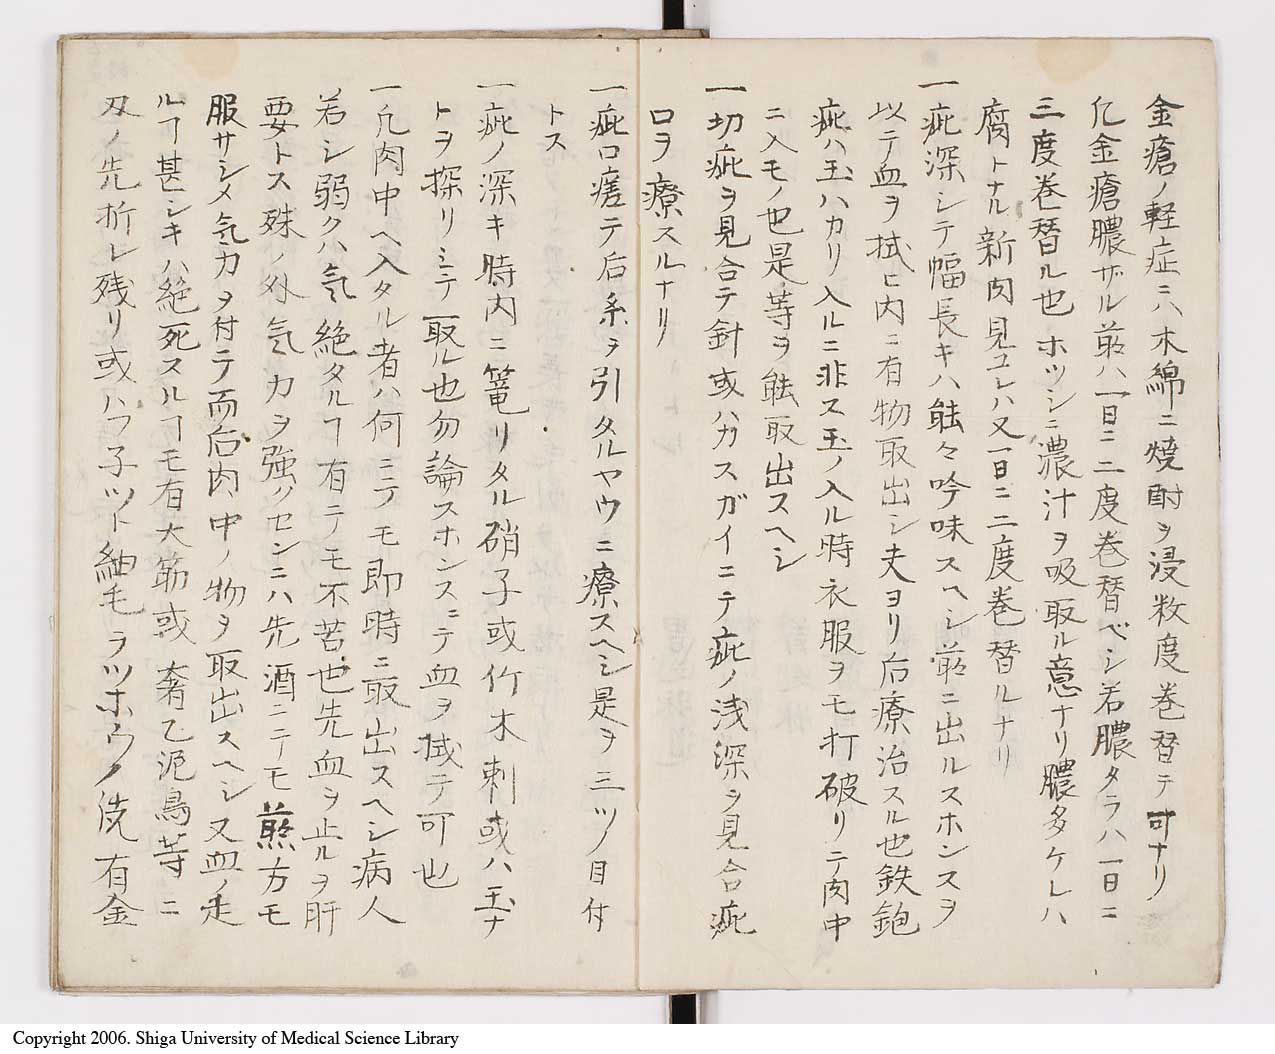 金瘡ノ軽症ニハ木綿ニ焼酎ヲ浸数度巻替テ可ナリ
凢金瘡膿ザル前ハ一日ニ二度巻替ベシ若膿タラハ一日ニ
三度巻替ル也ホツシニ濃汁ヲ吸取ル意ナリ膿多ケレハ
腐トナル新肉見ユレハ又一日ニ二度巻替ルナリ
一疵深シテ幅長キハ能々吟味スヘシ前ニ出ルスホンスヲ
以テ血ヲ拭ヒ内ニ有物取出シ夫ヨリ后療治スル也鉄鉋
疵ハ玉ハカリ入ルニ非ス玉ノ入ル時衣服ヲモ打破リテ肉中
ニ入モノ也是等ヲ能取出スヘシ
一切疵ヲ見合テ針或ハカスガイニテ疵ノ浅深ヲ見合疵
口ヲ療スルナリ
一疵口瘥テ后糸ヲ引タルヤウニ療スヘシ是ヲ三ツノ目付
トス
一疵ノ深キ時内ニ篭リタル硝子或竹木刺或ハ玉ナ
トヲ探リミテ取ル也勿論スホンスニテ血ヲ拭テ可也
一凢肉中ヘ入タル者ハ何ニテモ即時ニ取出スヘシ病人
若シ弱クハ気絶タルヿ有ニテモ不苦也先血ヲ止ルヲ肝
要トス殊ノ外気力ヲ強クセンニハ先酒ニテモ煎方モ
服サシメ気力ヲ付テ而后肉中ノ物ヲ取出スヘシ又血ノ走
ルヿ甚シキハ絶死スルヿモ有大筋或奢乙泥鳥等ニ
刄ノ先折レ残リ或ハフ子ツト紬毛ヲツホウノ洗有金
Copyright 2006. Shiga University of Medical Science Library